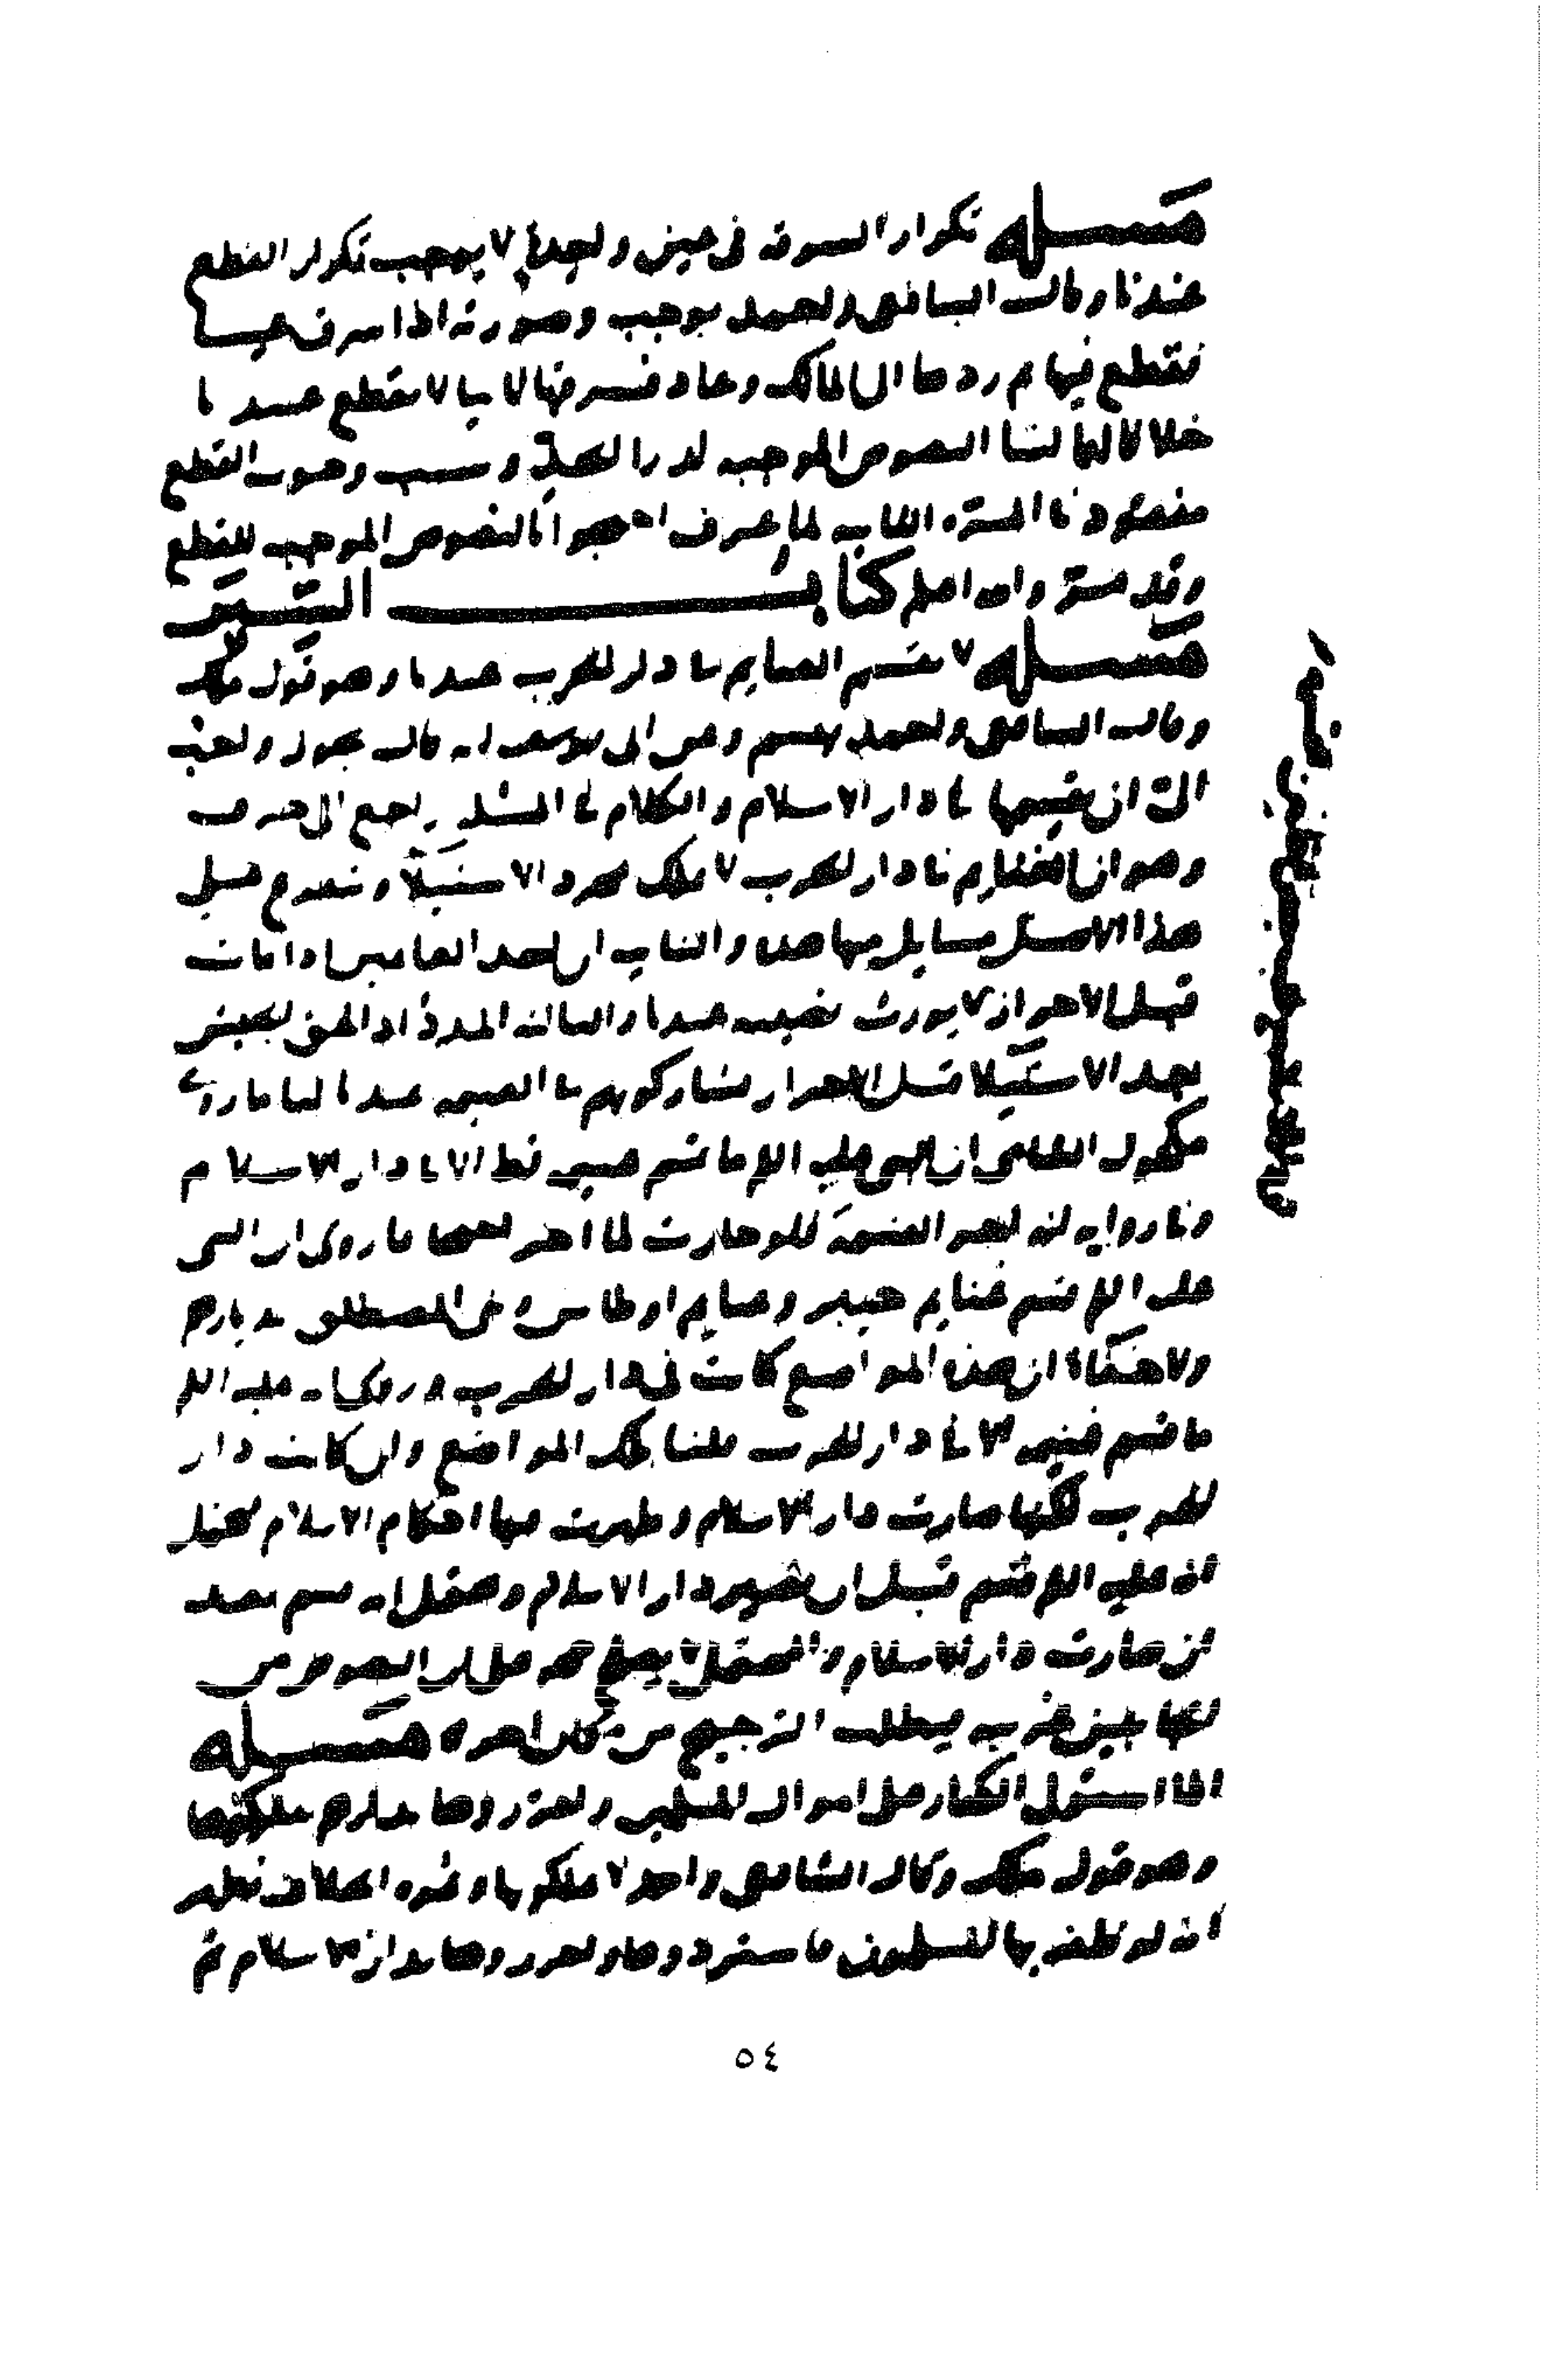 مسله تكرار السرقه فى عين واحدة لا يوجب تكرار القطع
عندنا وقال الشافعى واحمد يوجب وصورته اذا سرق عينا
فقطع فيها ثم ردها الى المالك وعاد فسرقها ثانيا لا يقطع عندنا
خلافا لهما لنا النصوص الموجبه لدرا الحد وسبب وجوب القطع
مفقود فى السرقه الثانيه لما عرف احتجوا بالنصوص الموجبه للقطع
وقد مر والله اعلم كتاب السير
مسله لا تقسم الغنايم فى دار الحرب عندنا وهو قول ملك
وقال الشافعى واحمد يقسم وعن ابى يوسف انه قال يجوز واحب
الى ان يقسمها فى دار الاسلام والكلام فى المسله راجع الى حرف
وهو ان الغنايم فى دار الحرب لا تملك بمجرد الاستيلا ويتفرع على
هذا الاصل مسايل منها هذه والثانيه ان احد الغانمين اذا مات
قبل الاحراز لا يورث نصيبه عندنا والثالثه المدد اذا لحق الجيش
بعد الاستيلا قبل الاحراز يشاركونهم فى الغنيمه عندنا لنا ما روى
مكحول الشامى ان النبى عليه السلم ما قسم غنيمه قط الا فى دار الاسلام
وفا روايه انه اخر القسمة ما روى ان النبى
عليه السلم قسم غنايم حنين وغنايم اوطاس وبنى المصطلق بديارهم
ولا خفاء ان هذه المواضع كانت فى دار الحرب عليه السلم
ما قسم غنيمه الا فى دار الحرب قلنا تلك المواضع وان كانت دار
الحرب لكنها صارت دار الاسلام وظهرت فيها احكام الاسلام يحتمل
انه عليه السلم قسم قبل ان تصير دار الاسلام ويحتمل انه قسم بعد
ان صارت دار الاسلام والمحتمل لا يصلح حجه على ان النصوص من
الجانبين يطلب الترجيح من مكان اخر ه مسله
اذا استولى الكفار على اموال المسلمين واحرزوها بدارهم ملكوها
وهو قول ملك وقال الشافعى واحمد لا يملكونها وثمره الخلاف تظهر
انه لو ظفر بها المسلمون فاستردوها واحرزوها بدار الاسلام ثم
٥٤